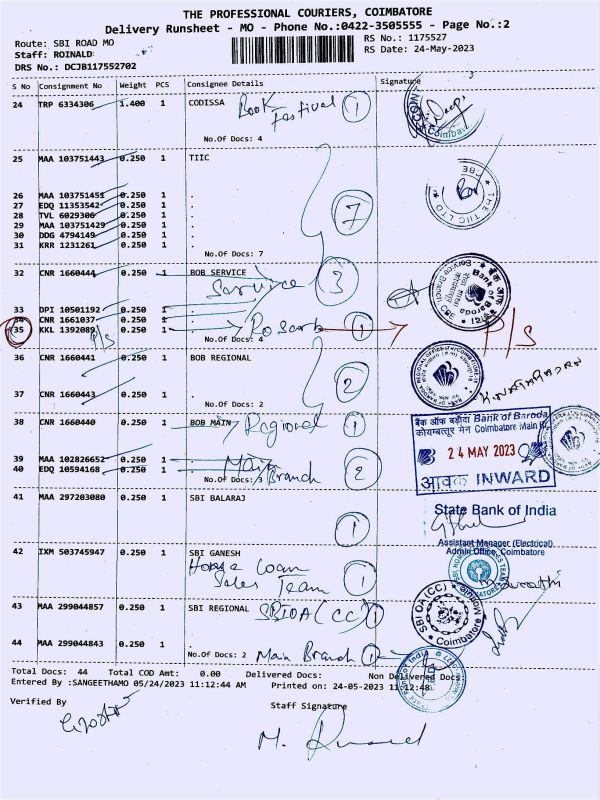 THE PROFESSIONAL COURIERS, COIMBATORE
Delivery Runsheet - MO - Phone No.:0422-3505555 - Page No.:2
Route: SBI ROAD MO
RS No.: 1175527
Staff: ROINALD
RS Date: 24-May-2023
DRS No.: DCJB117552702
S No Consignment No Weight PCS Consignee Details Signature
24 TRP 6334306 1.400 1 CODISSA Book Festival 1
No.Of Docs: 4
25 MAA 103751443 0.250 1 TIIC
26 MAA 103751451 0.250 1 .
27 EDQ 11353542 0.250 1 .
28 TVL 6029306 0.250 1 . 7
29 MAA 103751429 0.250 1 .
30 DDG 4794149 0.250 1 .
31 KRR 1231261 0.250 1 .
No.Of Docs: 7
32 CNR 1660444 0.250 1 BOB SERVICE
Service 3
33 DPI 10501192 0.250 1 .
34 CNR 1661037 0.250 1 .
35 KKL 1392089 0.250 1 . 1 P/S
P/S No.Of Docs: 4
36 CNR 1660441 0.250 1 BOB REGIONAL
2
37 CNR 1660443 0.250 1 .
No.Of Docs: 2
38 CNR 1660440 0.250 1 BOB MAIN Regional 1
बैंक ऑफ बड़ौदा Bank of Baroda
कोयम्बत्तूर मेन Coimbatore Main
24 MAY 2023
आवक INWARD
39 MAA 102826652 0.250 1 . Main
40 EDQ 10594168 0.250 1 . Branch 2
No.Of Docs: 3
41 MAA 297203080 0.250 1 SBI BALARAJ
1
State Bank of India
Assistant Manager (Electrical)
Admin Office, Coimbatore
42 IXM 503745947 0.250 1 SBI GANESH
Home Loan
Sales Team 1
43 MAA 299044857 0.250 1 SBI REGIONAL SBIOA (CC) 1
SBI OA (CC) Coimbatore
44 MAA 299044843 0.250 1 .
No.Of Docs: 2 Main Branch 1
Total Docs: 44 Total COD Amt: 0.00 Delivered Docs: Non Delivered Docs:
Entered By :SANGEETHAMO 05/24/2023 11:12:44 AM Printed on: 24-05-2023 11:12:48
Verified By
Staff Signature